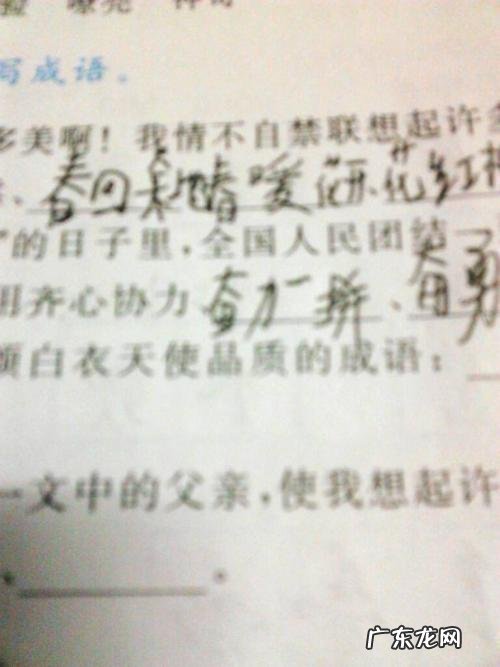 嘹亮 神奇
写成语。
多美啊！我情不自禁联想起许多
、春回大地、春暖花开、花红柳
”的日子里，全国人民团结一
用齐心协力、奋力一拼、奋勇
颂白衣天使品质的成语：
一文中的父亲，使我想起许
、 。
广东龙网